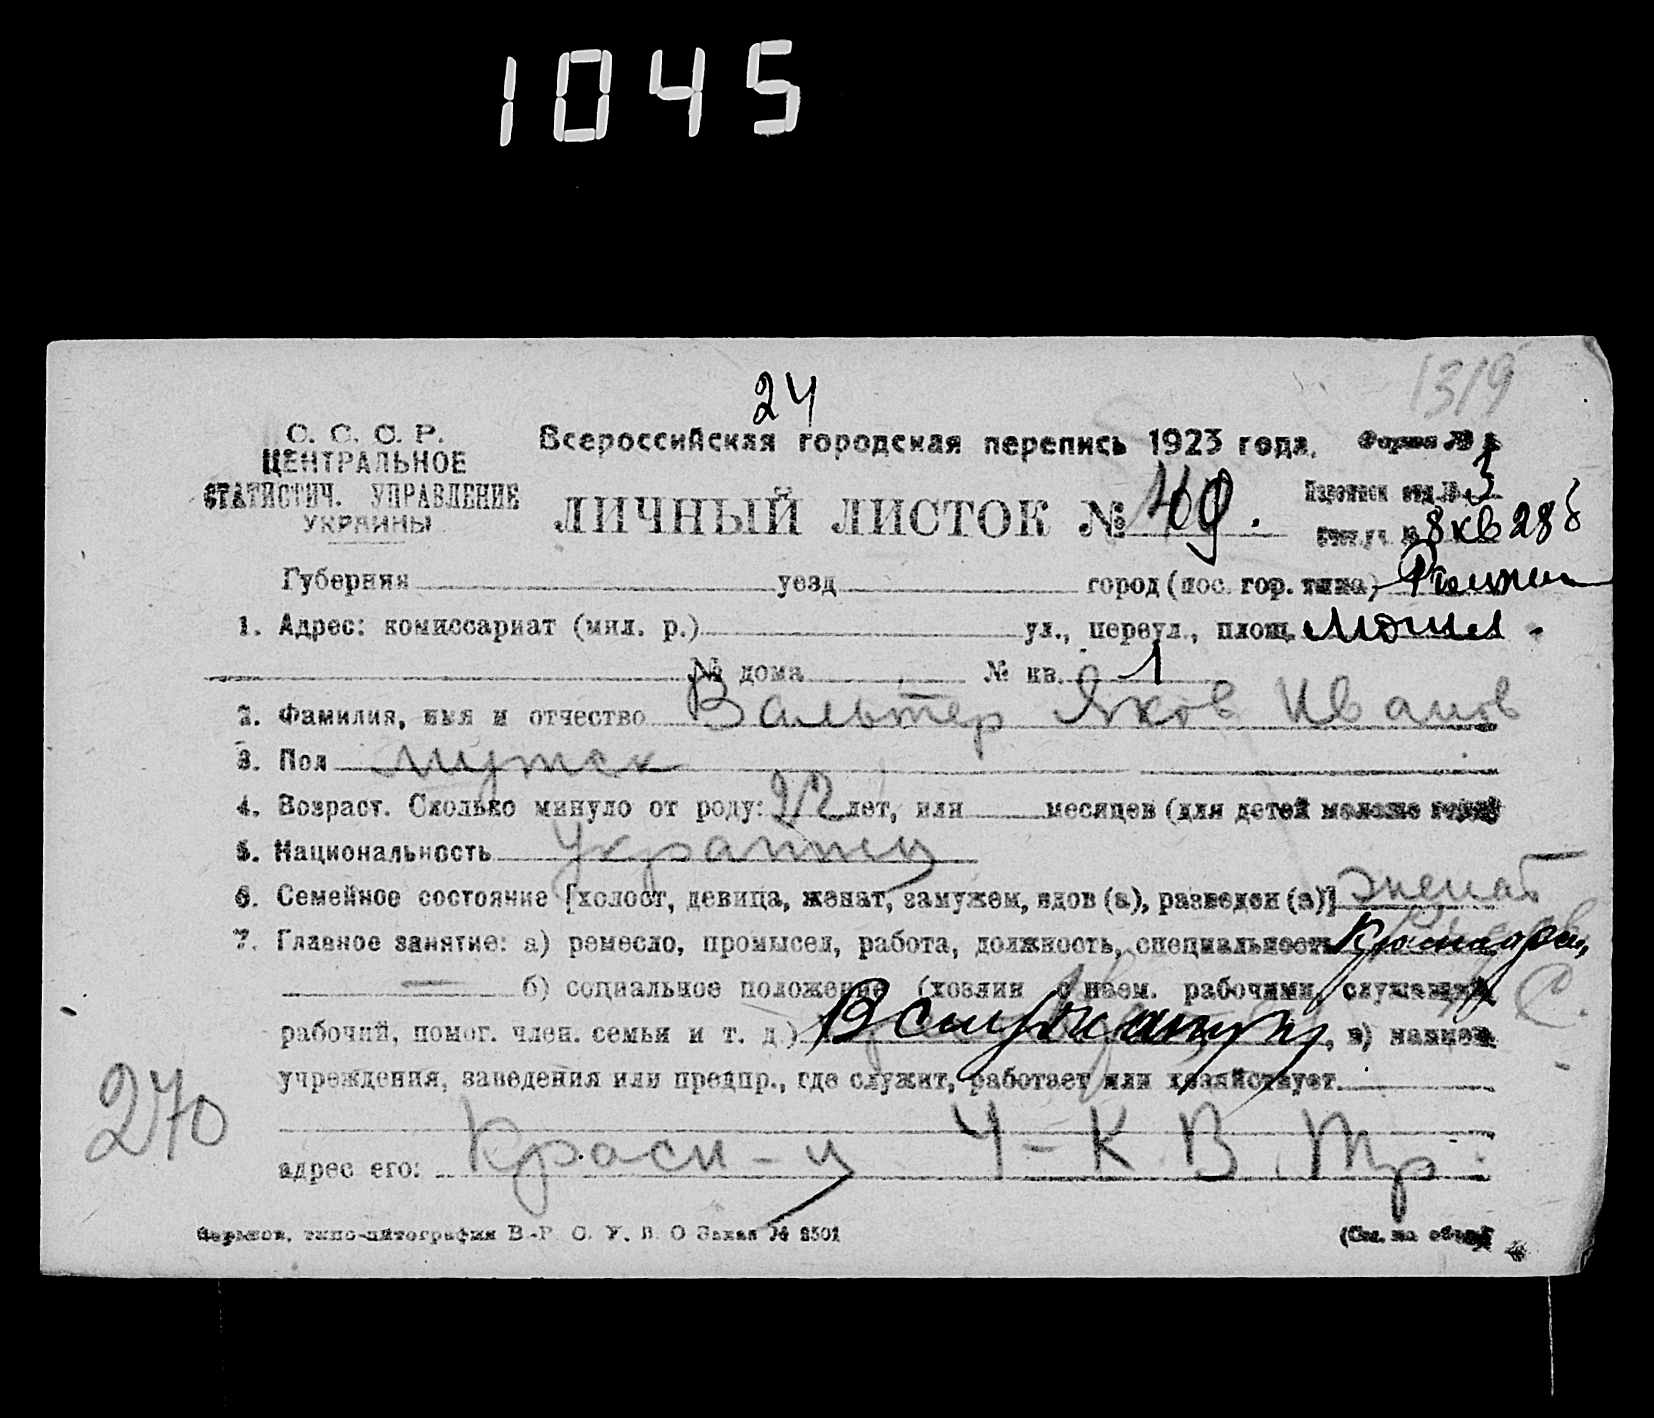 1045
1319
24
С. С. С. Р.
ЦЕНТРАЛЬНОЕ
СТАТИСТИЧ. УПРАВЛЕНИЕ
УКРАИНЫ
Всероссийская городская перепись 1923 года.
Форма №
ЛИЧНЫЙ ЛИСТОК №
отд. № 3
8 кв 28
Губерния уезд город (пос. гор. типа)
1. Адрес: комиссариат (мил. р.) ул., переул., площ.
№ дома № кв. 1
2. Фамилия, имя и отчество Вальтер Яков Иванов
3. Пол мужск
4. Возраст. Сколько минуло от роду: 22 лет, или месяцев (для детей моложе года)
5. Национальность украинец
6. Семейное состояние [холост, девица, женат, замужем, вдов (а), разведен (а)] женат
7. Главное занятие: а) ремесло, промысел, работа, должность, специальность
— б) социальное положение (хозяин с наем. рабочими, служащий,
рабочий, помог. член. семьи и т. д.) , в) название
учреждения, заведения или предпр., где служит, работает или хозяйствует.
270
адрес его: Красн-ц 4-К.В.Тр.
Харьков, типо-литография В.-Р. С. У. В. О Заказ № 2501
(См. на обор